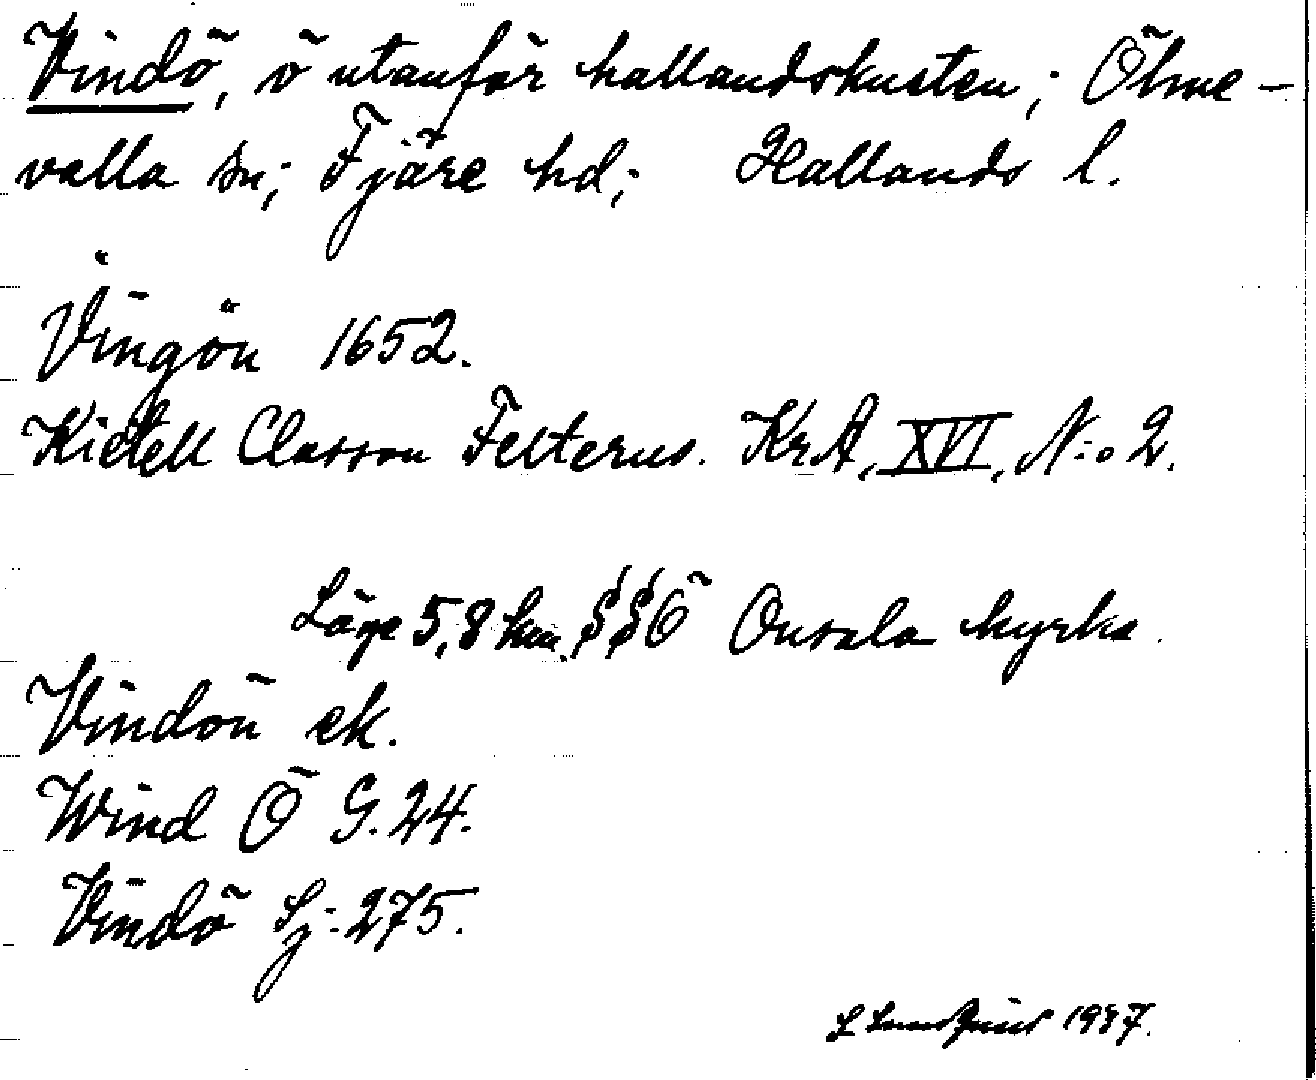 Vindö, ö utanför hallandskusten; Ölme-
valla sn; Fjäre hd; Hallands l.
Vingön 1652.
Kietell Classon Felterus. KrA, XVI, N:o 2.
Läge 5,8 km. SSÖ Onsala kyrka.
Vindön ek.
Wind Ö G. 24.
Vindö Sj: 275.